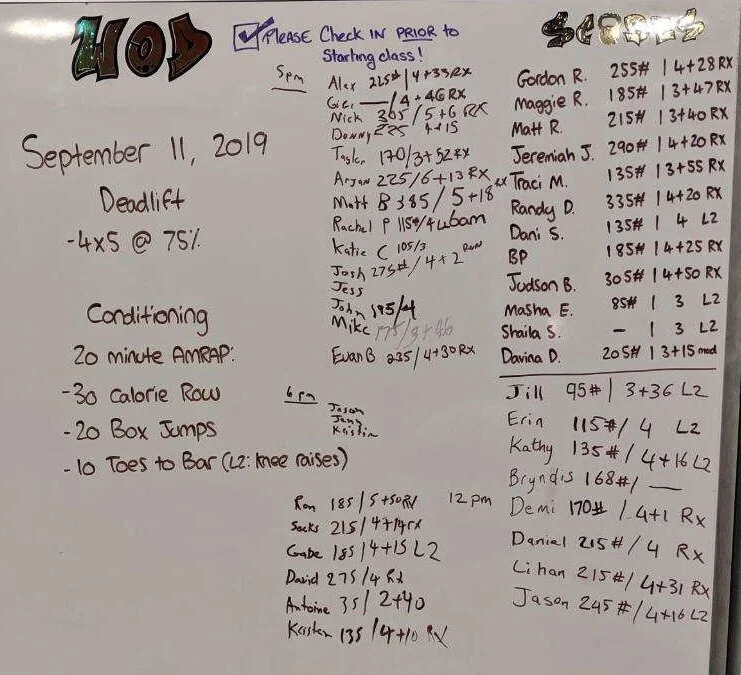 WOD
September 11, 2019
Deadlift
-4x5 @ 75%
Conditioning
20 minute AMRAP:
-30 Calorie Row
-20 Box Jumps
-10 Toes to Bar (L2: knee raises)
PLEASE Check IN PRIOR to
Starting class!
5pm
Alex 225# | 4+33RX
— / 4+46 RX
Nick 305 / 5+6 RX
Donny 225 4+15
Taylor 170/3+52 RX
Arjan 225/6+13 RX
Matt B 385 / 5+18 RX
Rachel P 115#/4
Katie C 105/3
Josh 275# / 4+2
Jess
John 195/4
Mike 175/3+46
Evan B 235 / 4+30 RX
6pm
Jason
Jenn
Kristin
Ron 185 | 5+50RX
Socks 215/4+14rx
Gabe 185/4+15 L2
David 275/4 RX
Antoine 35/ 2+40
Kristen 135 /4+10 RX
SCORES
Gordon R. 255# | 4+28 RX
Maggie R. 185# | 3+47 RX
Matt R. 215# | 3+40 RX
Jeremiah J. 290# | 4+20 RX
Traci M. 135# | 3+55 RX
Randy D. 335# | 4+20 RX
Dani S. 135# | 4 L2
BP 185# | 4+25 RX
Judson B. 305# | 4+50 RX
Masha E. 85# | 3 L2
Shaila S. - | 3 L2
Davina D. 205# | 3+15 mod
Jill 95# | 3+36 L2
Erin 115# / 4 L2
Kathy 135# / 4+16 L2
Bryndis 168#/ —
12pm
Demi 170# / 4+1 Rx
Danial 215# / 4 Rx
Lihan 215#/ 4+31 Rx
Jason 245 # /4+16 L2